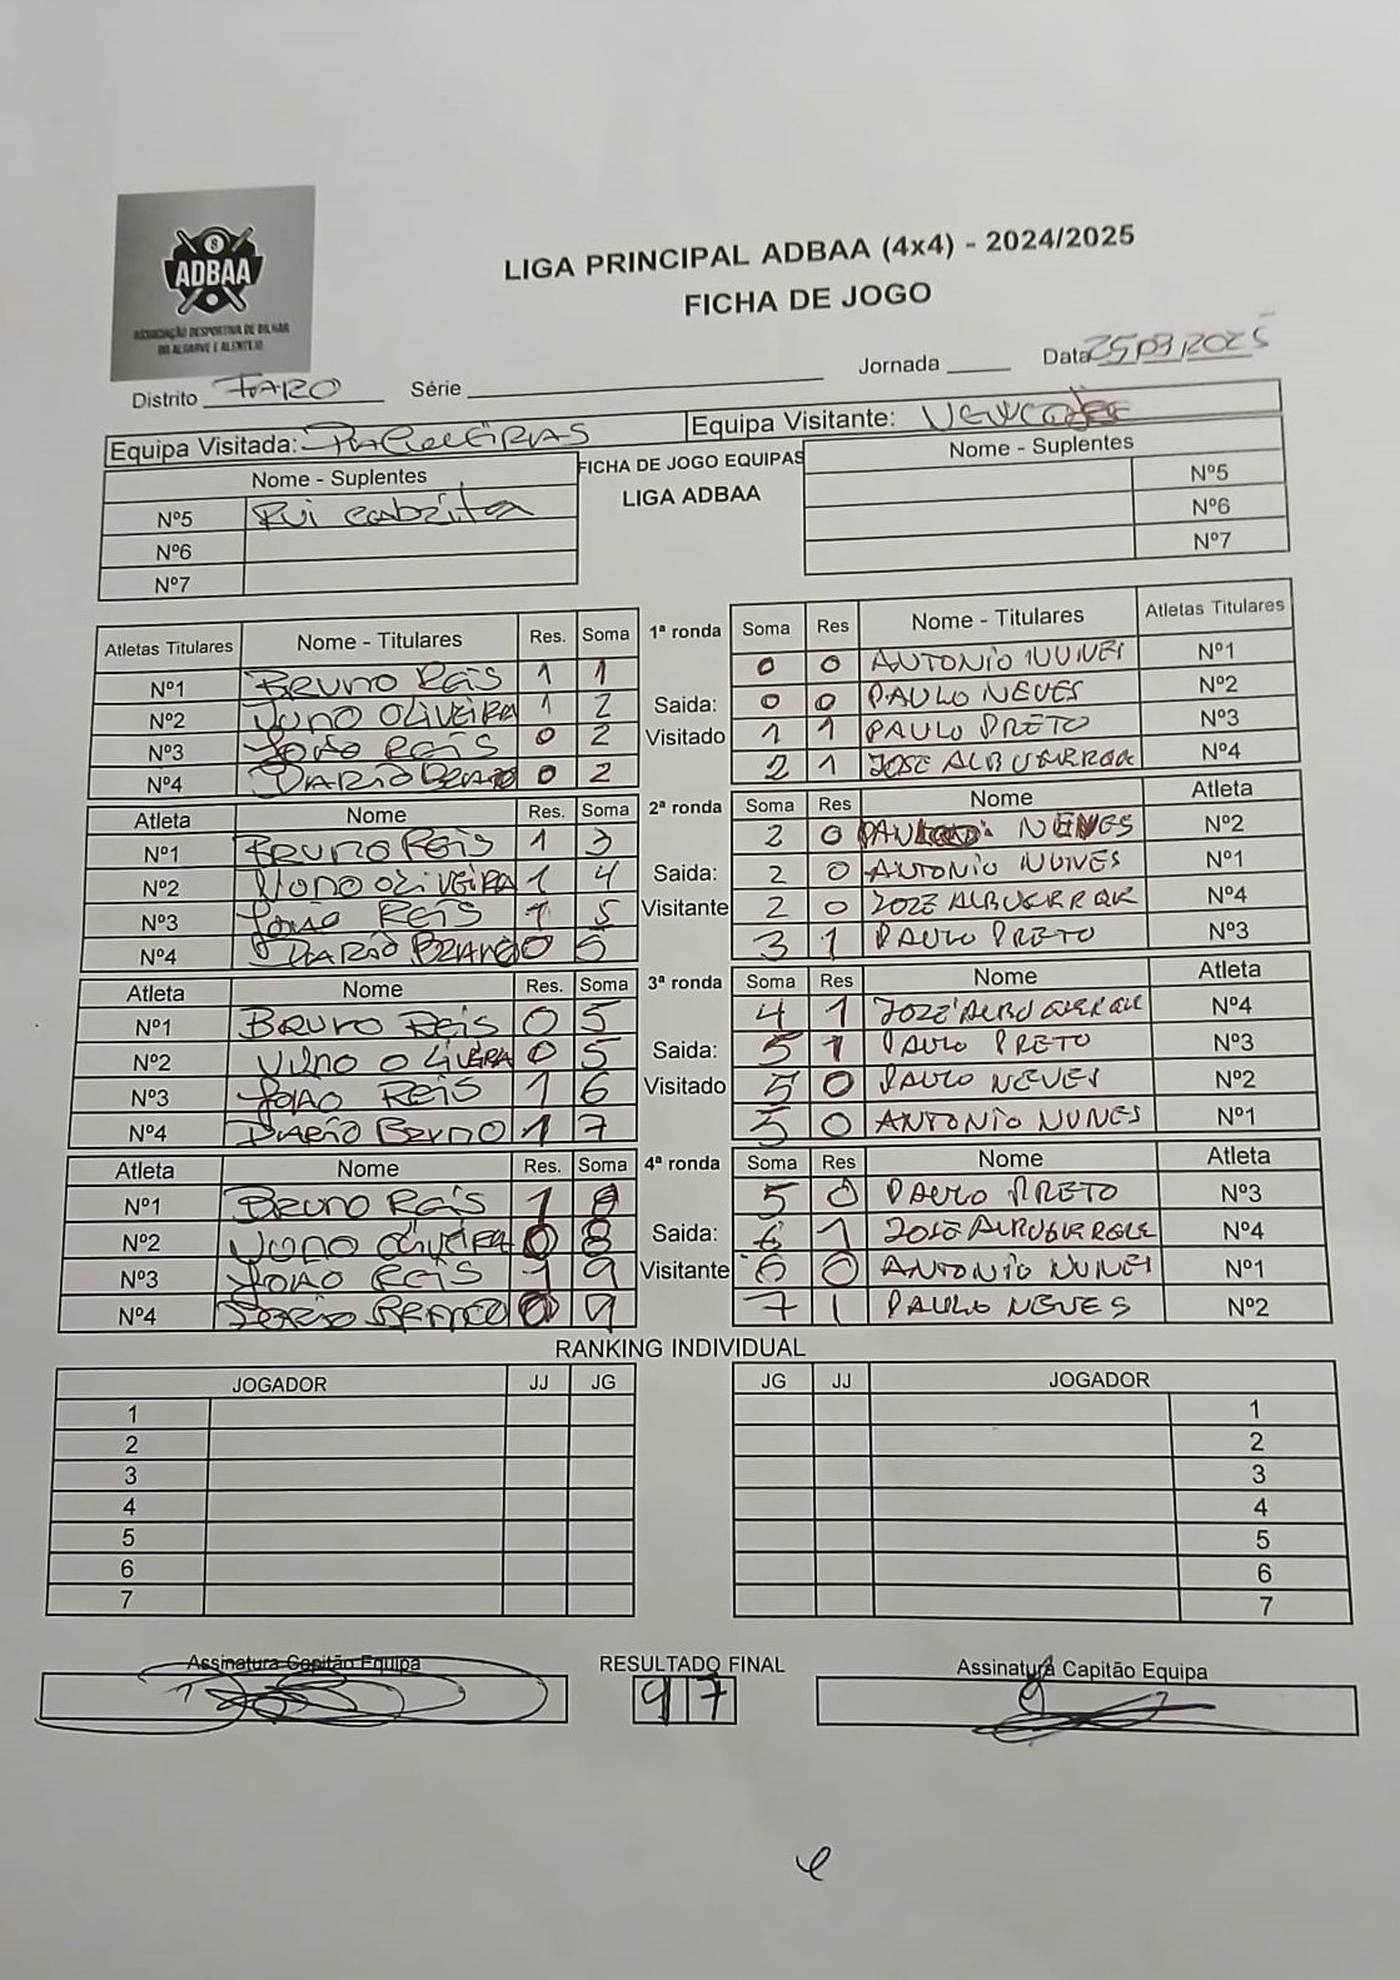 8
ADBAA
ASSOCIAÇÃO DESPORTIVA DE BILHAR
DO ALGARVE E ALENTEJO
LIGA PRINCIPAL ADBAA (4x4) - 2024/2025
FICHA DE JOGO
Distrito FARO Série Jornada Data 25,03,2025
Equipa Visitada: PALMEIRAS Equipa Visitante:
Nome - Suplentes FICHA DE JOGO EQUIPAS Nome - Suplentes
Nº5 Rui Cabrita LIGA ADBAA Nº5
Nº6 Nº6
Nº7 Nº7
Atletas Titulares Nome - Titulares Res. Soma 1ª ronda Soma Res Nome - Titulares Atletas Titulares
Nº1 BRUNO REIS 1 1 0 0 ANTONIO NUNES Nº1
Nº2 NUNO OLIVEIRA 1 2 Saida: 0 0 PAULO NEVES Nº2
Nº3 JOÃO REIS 0 2 Visitado 1 1 PAULO PRETO Nº3
Nº4 DARIO 0 2 2 1 JOSE ALBUQUERQUE Nº4
Atleta Nome Res. Soma 2ª ronda Soma Res Nome Atleta
Nº1 BRUNO REIS 1 3 2 0 PAULO NEVES Nº2
Nº2 NUNO OLIVEIRA 1 4 Saida: 2 0 ANTONIO NUNES Nº1
Nº3 JOÃO REIS 1 5 Visitante 2 0 JOZE ALBUQUERQUE Nº4
Nº4 DARIO 0 5 3 1 PAULO PRETO Nº3
Atleta Nome Res. Soma 3ª ronda Soma Res Nome Atleta
Nº1 BRUNO REIS 0 5 4 1 JOZE ALBUQUERQUE Nº4
Nº2 NUNO OLIVEIRA 0 5 Saida: 5 1 PAULO PRETO Nº3
Nº3 JOAO REIS 1 6 Visitado 5 0 PAULO NEVES Nº2
Nº4 DARIO 1 7 5 0 ANTONIO NUNES Nº1
Atleta Nome Res. Soma 4ª ronda Soma Res Nome Atleta
Nº1 BRUNO REIS 1 8 5 0 PAULO PRETO Nº3
Nº2 NUNO OLIVEIRA 0 8 Saida: 6 1 JOSE ALBUQUERQUE Nº4
Nº3 JOAO REIS 1 9 Visitante 6 0 ANTONIO NUNES Nº1
Nº4 DARIO 0 9 7 1 PAULO NEVES Nº2
RANKING INDIVIDUAL
JOGADOR JJ JG JG JJ JOGADOR
1 1
2 2
3 3
4 4
5 5
6 6
7 7
Assinatura Capitão Equipa RESULTADO FINAL Assinatura Capitão Equipa
9 7